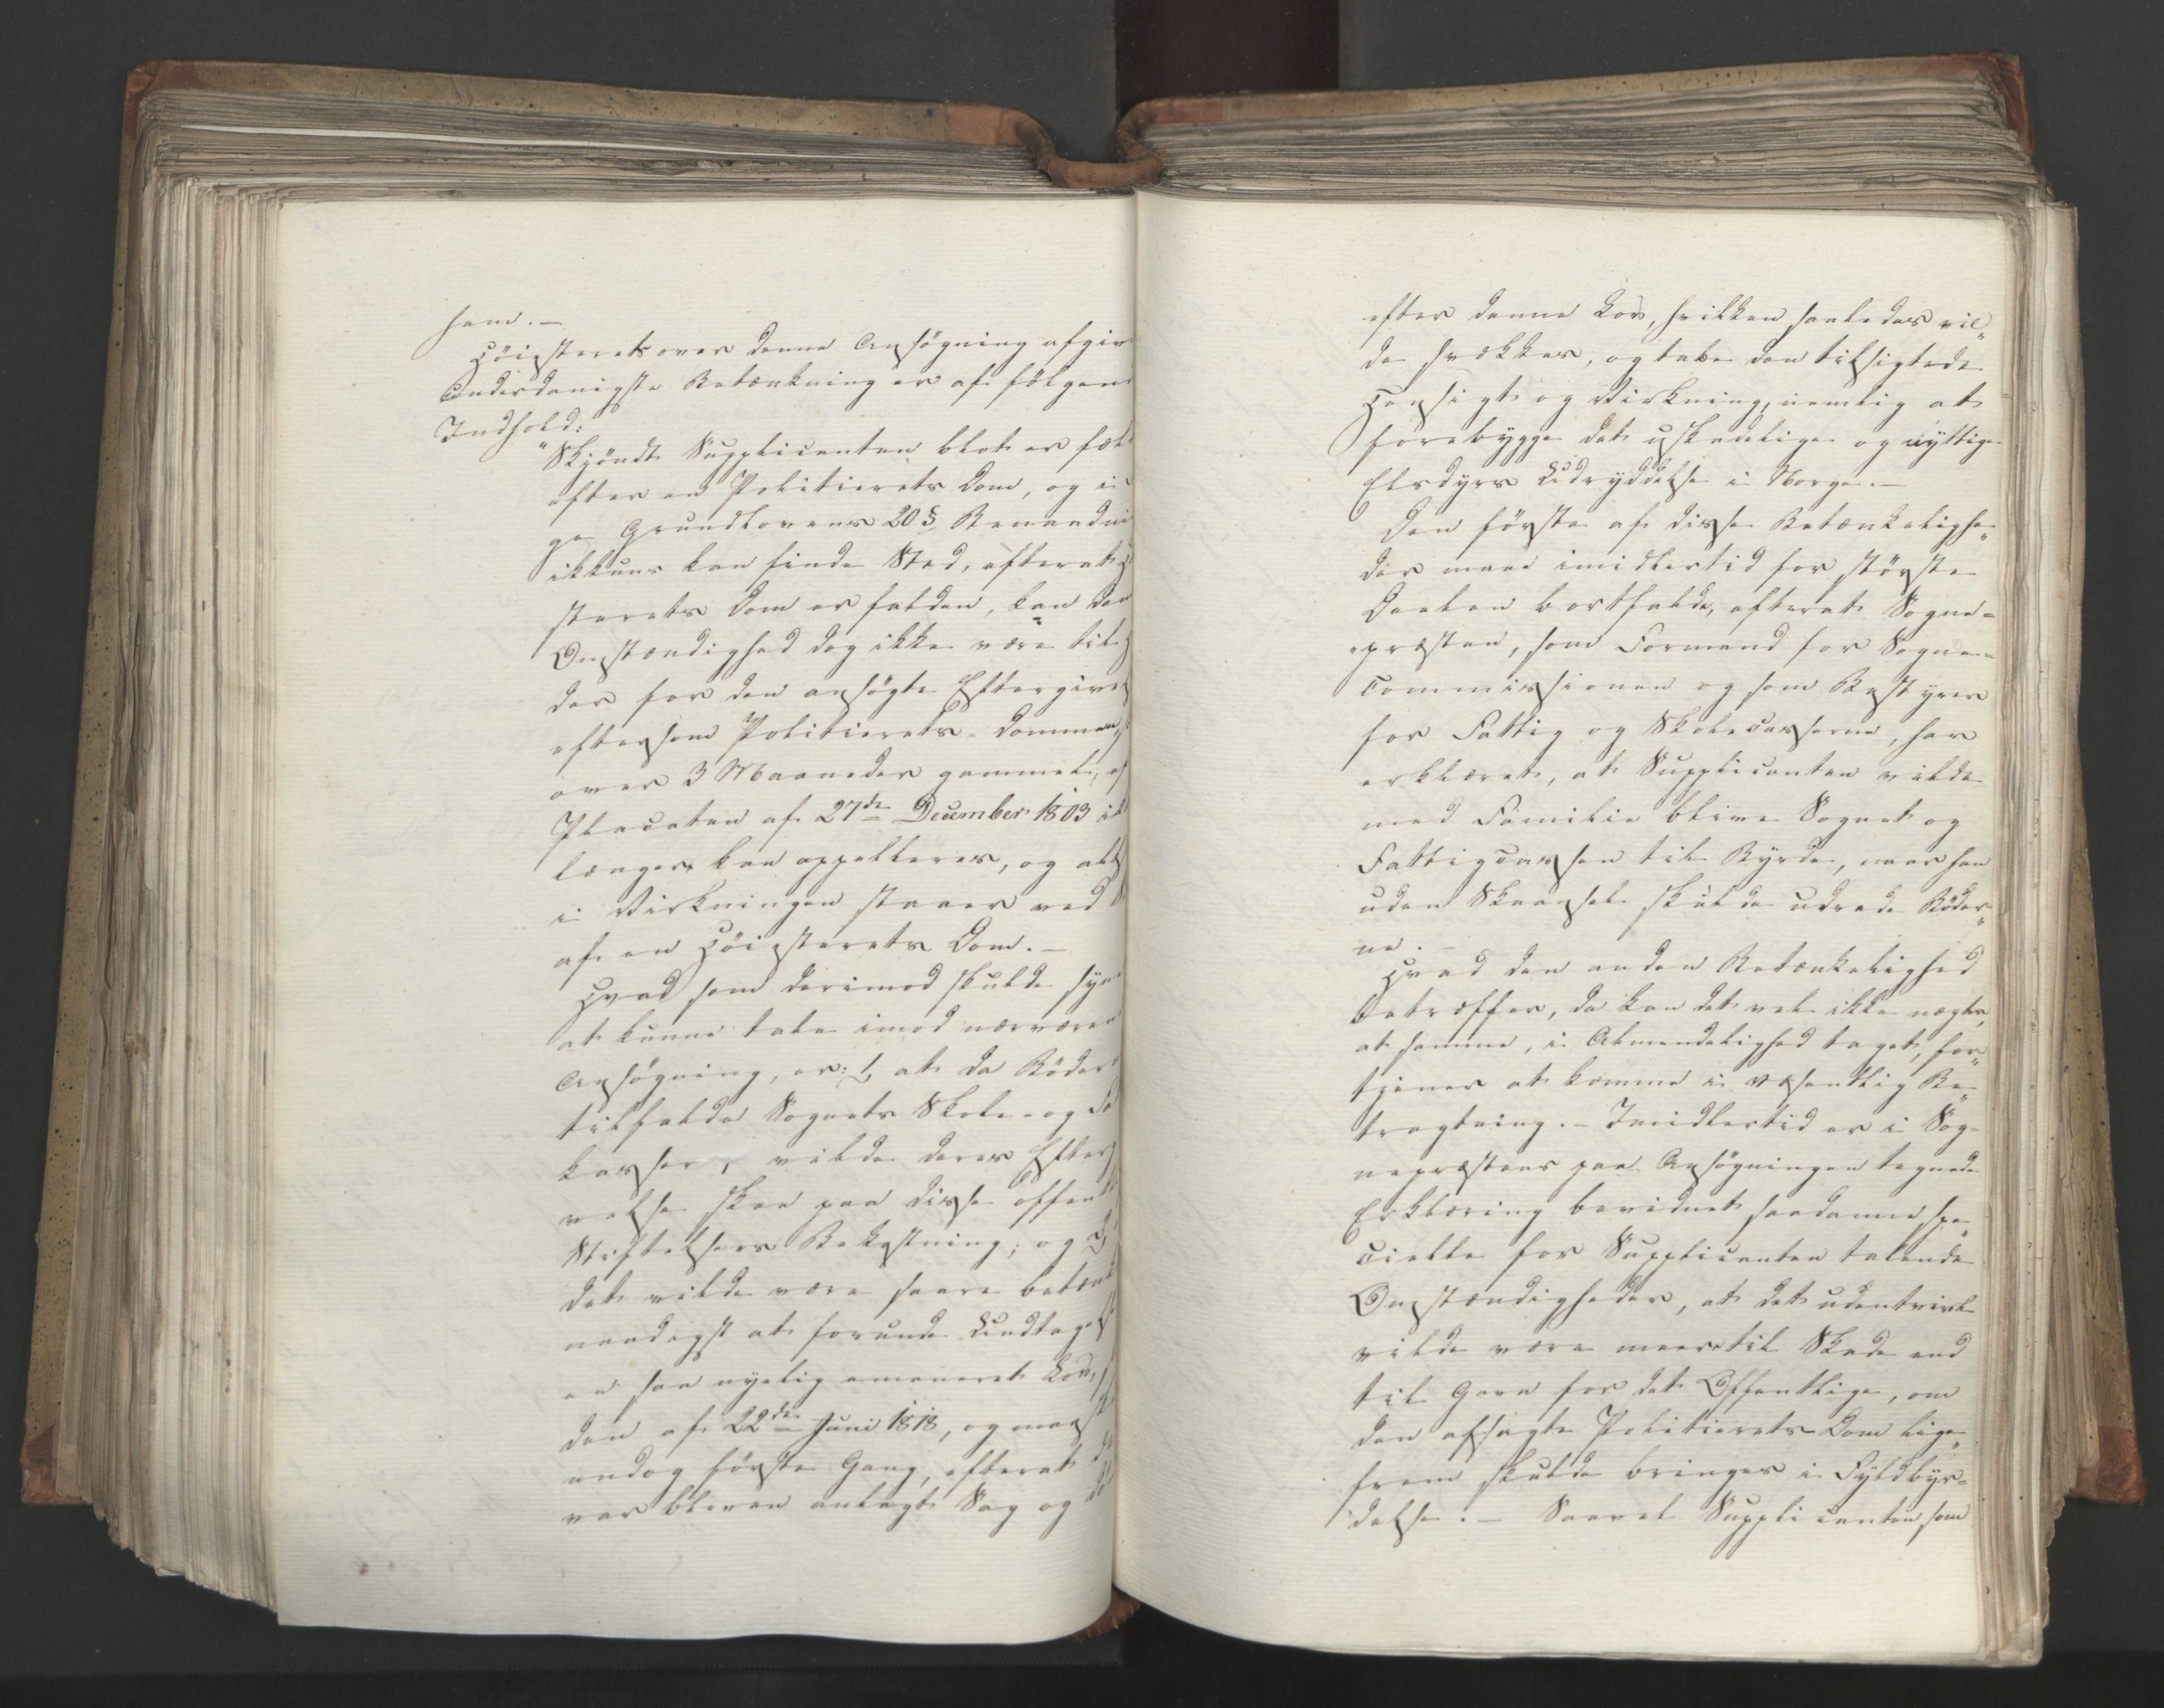 ham. –
Höiesterets over denne Ansøgning afgiv
underdanigste Betænkning er af følgen
Indhold:
"Skjøndt Supplicanten blot er fæl
efter en Politierets Dom, og i
ge Grundlovens 20 § Benaadni
ikkuns kan finde Sted, efterat H
sterets Dom er falden, kan den
Omstændighed dog ikke være til H
der for den ansøgte Eftergivel
eftersom Politierets-Dommen,
over 3 Maaneder gammel, ef
Placaten af 27de December 1803 ik
længere kan appelleres, og alt
i Virkningen staaer ved S
af en Höiesterets Dom. –
Hvad som derimod skulde syn
at kunne tale imod nærværen
Ansøgning, er: 1, at da Bøder
tilfalde Sognets Skole- og Fa
kasser, vilde deres Efterg
velse skee paa disse offentl
Stiftelsers Bekostning; og 2,
det vilde være saare betænk
naadigst at forunde Undtagels
en saa nyelig emaneret Lov,
den af 22de Juni 1818, og maas
endog første Gang, efterat d
var bleven anlagt Sag og
efter denne Lov, hvilken saaledes vil„
de svækkes, og tabe den tilsigtede
Hensigt og Virkning, nemlig at
forebygge det uskadelige og nyttige
Elsdyrs Udryddelse i Norge. –
Den første af disse Betænkelighe„
der maae imidlertid for største
Deelen bortfalde, efterat Sogne=
præsten, som Formand for Sogne=
Commissionen og som Bestyrer
for Fattig og Skolecasserne, har
erklæret, at Supplicanten vilde
med Familie blive Sognet og
Fattigcassen til Byrde, naar han
uden Skaansel skulde udrede Bøder„
ne. –
Hvad den anden Betænkelighed
betræffer, da kan det vel ikke nægtes,
at samme, i Almendelighed taget, for„
tjener at komme i væsentlig Be„
tragtning. – Imidlertid er i Sog-
nepræstens paa Ansøgningen tegnede
Erklæring bevidnet saadanne spe„
cielle for Supplicanten talende
Omstændigheder, at det udentvivl
vilde være meer til Skade end
til Gavn for det Offentlige, om
den afsagte Politierets Dom lige„
frem skulde bringes i Fyldbyr=
delse. – Saavel Supplicanten, som